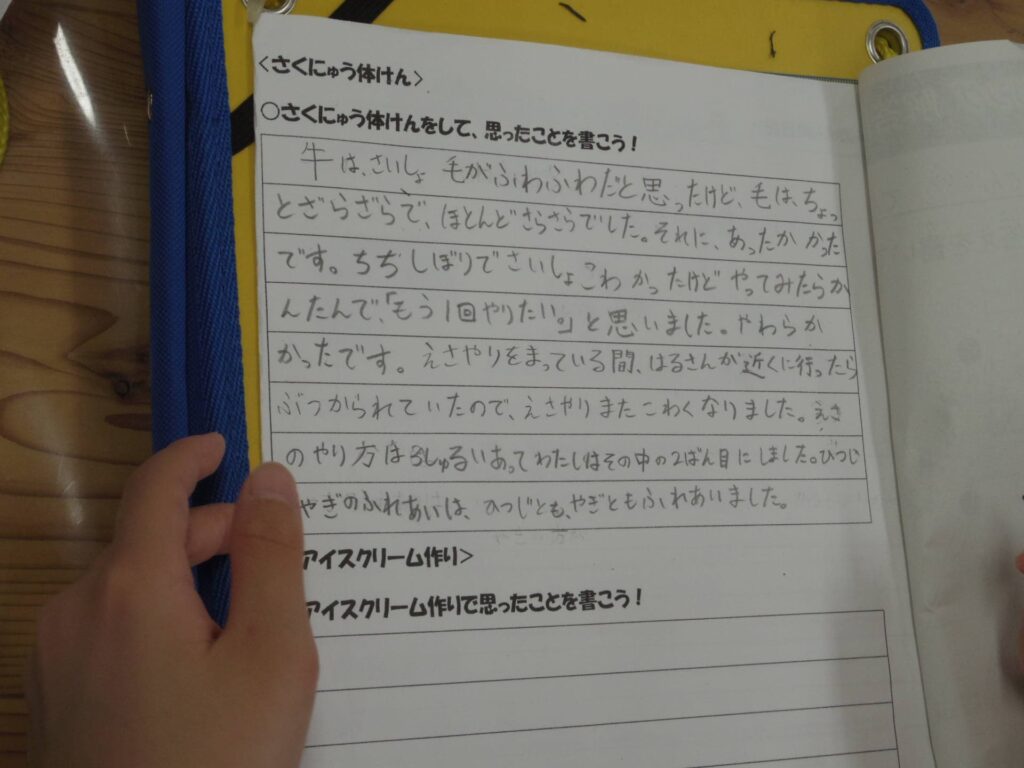 <さくにゅう体けん>
○さくにゅう体けんをして、思ったことを書こう！
牛は、さいしょ毛がふわふわだと思ったけど、毛は、ちょっ
とざらざらで、ほとんどさらさらでした。それに、あったかかった
です。ちちしぼりでさいしょこわかったけどやってみたらか
んたんで、「もう1回やりたい。」と思いました。やわらか
かったです。えさやりをまっている間、はるさんが近くに行ったら
ぶつかられていたので、えさやりまたこわくなりました。えさ
のやり方は3しゅるいあってわたしはその中の2ばん目にしました。ひつじ
やぎのふれあいは、ひつじとも、やぎともふれあいました。
アイスクリーム作り>
アイスクリーム作りで思ったことを書こう！